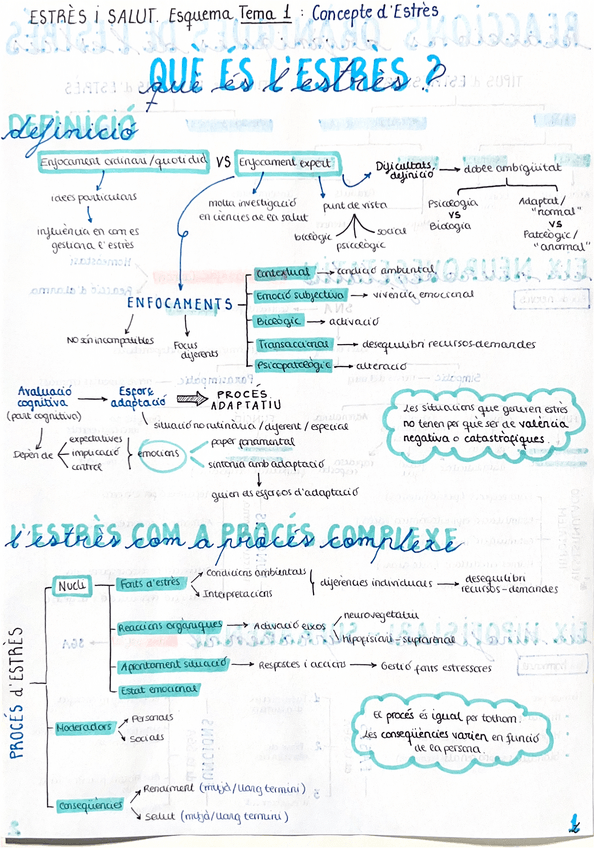 ESTRÈS i SALUT. Esquema Tema 1 : Concepte d'Estrès
QUÈ ÉS L'ESTRÈS?
que és l'estrès?
DEFINICIÓ
definició
Enfocament ordinari/quotidià VS Enfocament expert
Dificultats definició → dobee ambigüitat
idees particulars
influència en com es gestiona l'estrès
molta investigació en ciències de la salut
punt de vista
biològic
psicològic
social
Psicologia VS Biologia
Adaptat/ "normal" VS Patològic/ "anormal"
ENFOCAMENTS
No són incompatibles
Focus diferents
Contextual → condició ambiental
Emoció subjectiva → vivència emocional
Biològic → activació
Transaccional → desequilibri recursos-demandes
Psicopatològic → alteració
Avaluació cognitiva (part cognitiva) → Esforç adaptació ⇒ PROCÉS ADAPTATIU
situació no rutinària / diferent / especial
Depèn de
expectatives
implicació
control
emocions
paper fonamental
sintonia amb adaptació
guien els esforços d'adaptació
Les situacions que generen estrès
no tenen per què ser de valència
negativa o catastròfiques.
L'ESTRÈS COM A PROCÉS COMPLEXE
l'estrès com a procés complexe
PROCÉS d'ESTRÈS
Nucli
Fonts d'estrès
Condicions ambientals
Interpretacions
diferències individuals → desequilibri recursos-demandes
Reaccions orgàniques → Activació eixos
neurovegetatiu
hipofisiari-suprarenal
Afrontament situació → Respostes i accions → Gestió fonts estressores
Estat emocional
Moderadors
Personals
Socials
Conseqüències
Rendiment (mitjà/llarg termini)
Salut (mitjà/llarg termini)
El procés és igual per tothom.
Les conseqüències varien en funció
de la persona.
1